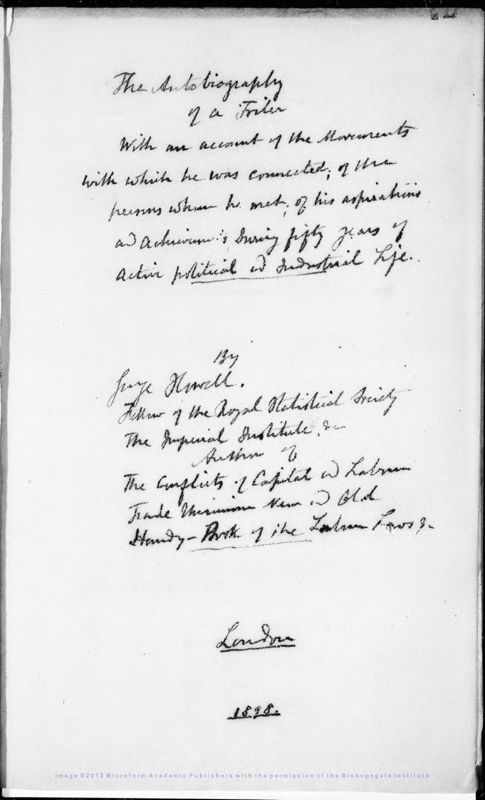 The Autobiography
of a Toiler
With an account of the Movements
with which he was connected; of the
persons whom he met; of his aspirations
and Achievem's During fifty years of
Active political and Industrial Life.
By
George Howell.
Fellow of the Royal Statistical Society
The Imperial Institute, &c
Author of
The Conflicts of Capital and Labour
Trade Unionism New and Old
Handy-Book of the Labour Laws &c
London
1898.
Image ©2013 Microform Academic Publishers with the permission of the Bishopsgate Institute